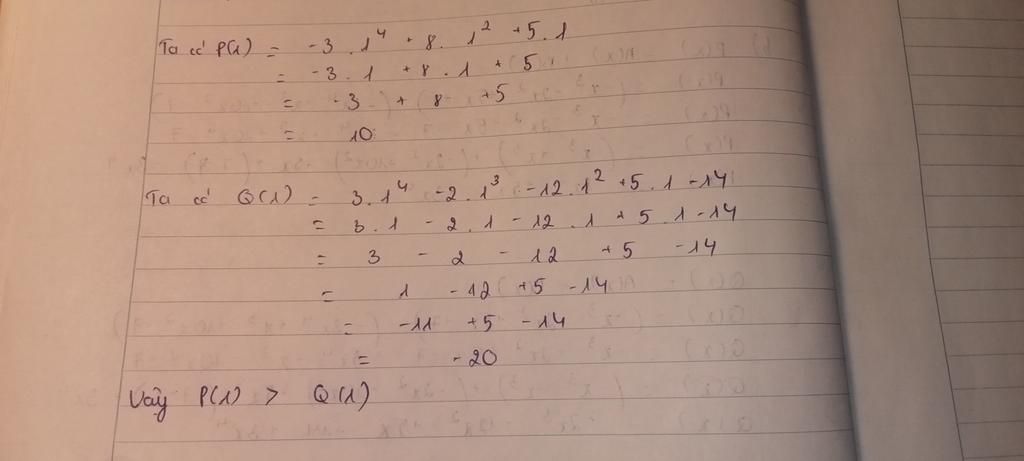 Ta có P(1) = -3 . 1⁴ + 8 . 1² + 5 . 1
= -3 . 1 + 8 . 1 + 5
= -3 + 8 + 5
= 10
Ta có Q(1) = 3 . 1⁴ - 2 . 1³ - 12 . 1² + 5 . 1 - 14
= 3 . 1 - 2 . 1 - 12 . 1 + 5 . 1 - 14
= 3 - 2 - 12 + 5 - 14
= 1 - 12 + 5 - 14
= -11 + 5 - 14
= -20
Vậy P(1) > Q(1)